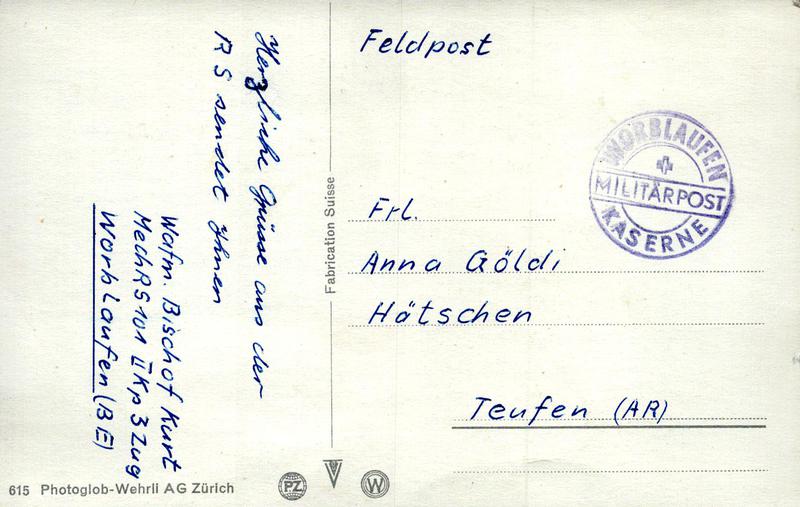 Herzliche Grüsse aus der
RS sendet Ihnen
Wafm. Bischof Kurt
Mech RS 101 II Kp 3 Zug
Worblaufen (BE)
Fabrication Suisse
Feldpost
WORBLAUFEN
MILITÄRPOST
KASERNE
Frl.
Anna Göldi
Hätschen
Teufen (AR)
615 Photoglob-Wehrli AG Zürich
PZ
W